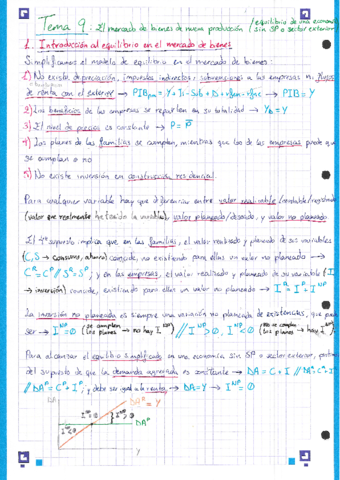 Tema 9: El mercado de bienes de nueva producción (equilibrio de una economía sin SP o sector exterior
1. Introducción al equilibrio en el mercado de bienes
Simplificamos el modelo de equilibrio en el mercado de bienes:
1) No existe depreciación, impuestos indirectos y subvenciones a las empresas ni flujos
de renta con el exterior → PIBpm = Y + Ti - Sub + D + → PIB = Y
2) Los beneficios de las empresas se reparten en su totalidad → YD = Y
3) El nivel de precios es constante → P = P̄
4) Los planes de las familias se cumplen, mientras que los de las empresas puede que
se cumplan o no
5) No existe inversión en construcción residencial.
Para cualquier variable hay que diferenciar entre valor realizado/contable/registrado
(valor que realmente ha tenido la variable), valor planeado/deseado, y valor no planeado.
El 4º supuesto implica que, en las familias, el valor realizado y planeado de sus variables
(C,S → consumo, ahorro) coincide, no existiendo para ellas un valor no planeado →
Cᴿ = Cᴾ // Sᴿ = Sᴾ; y en las empresas, el valor realizado y planeado de su variable (I
→ inversión) coincide, existiendo para ellas un valor no planeado → Iᴿ = Iᴾ + Iᴺᴾ
La inversión no planeada es siempre una variación no planeada de existencias, que puede
ser → Iᴺᴾ = 0 (se cumplen los planes → no hay I.) // Iᴺᴾ > 0, Iᴺᴾ < 0 (no se cumplen los planes → hay I.)
Para alcanzar el equilibrio simplificado en una economía sin SP o sector exterior, partimos
del supuesto de que la demanda agregada es constante → DA = C + I // DAᴿ = Cᴿ + Iᴿ
// DAᴾ = Cᴾ + Iᴾ, y debe ser igual a la renta → DA = Y → Iᴺᴾ = 0
DA
DAᴿ = Y
DAᴾ
Iᴺᴾ < 0
Iᴺᴾ > 0
Y